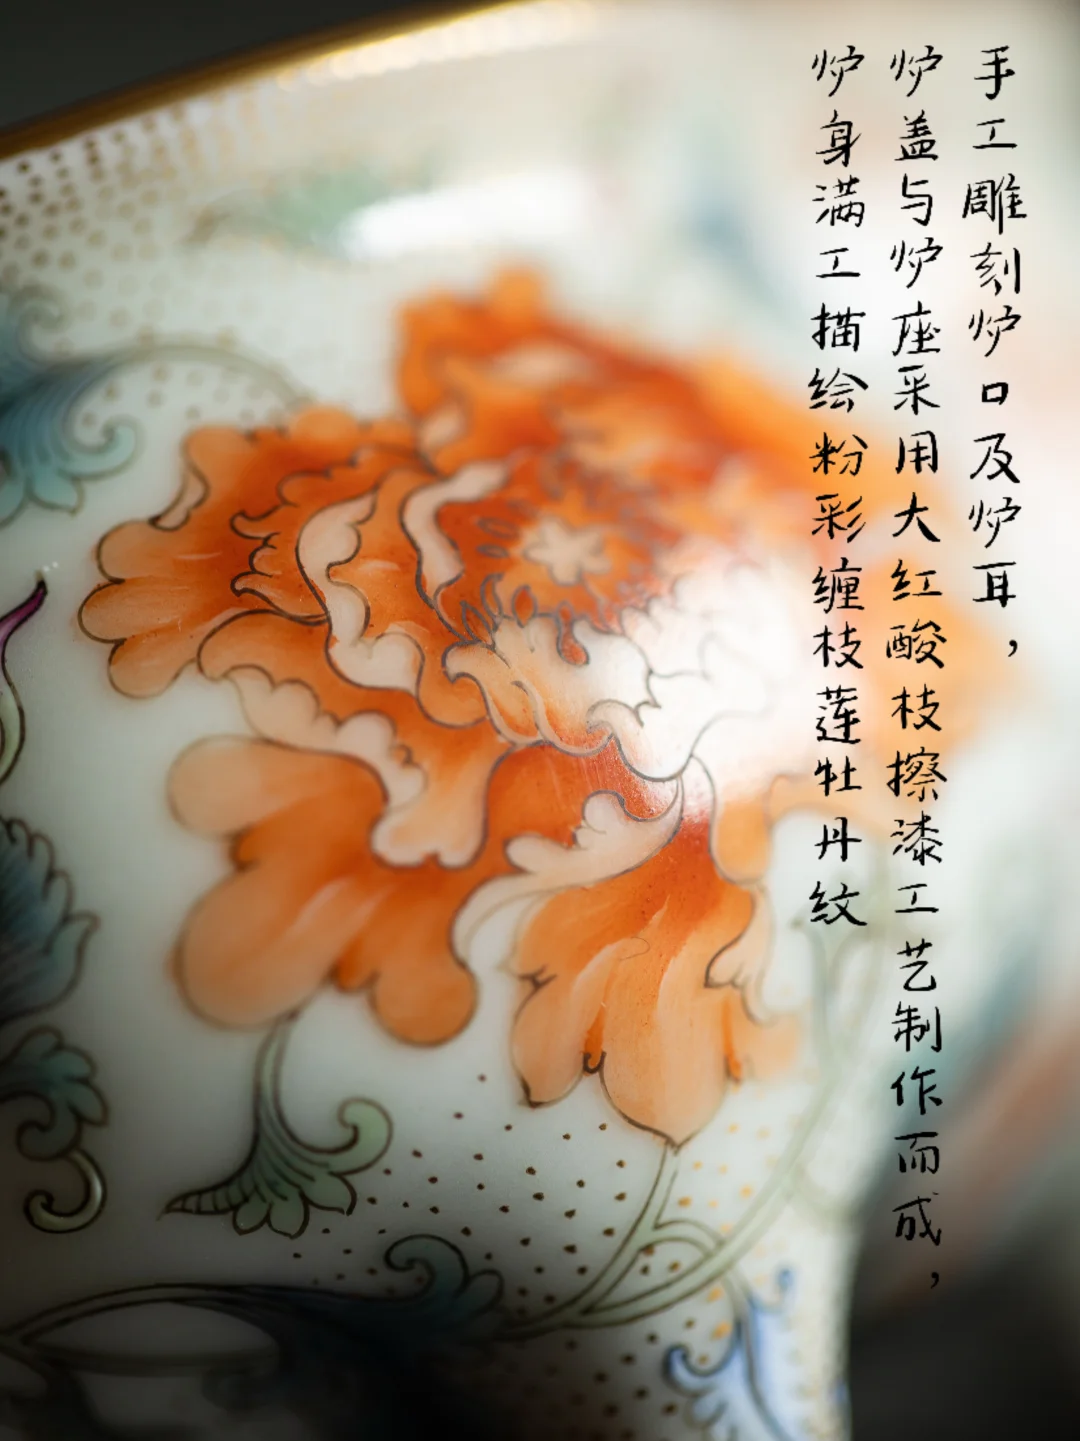 手工雕刻炉口及炉耳，
炉盖与炉座采用大红酸枝擦漆工艺制作而成，
炉身满工描绘粉彩缠枝莲牡丹纹